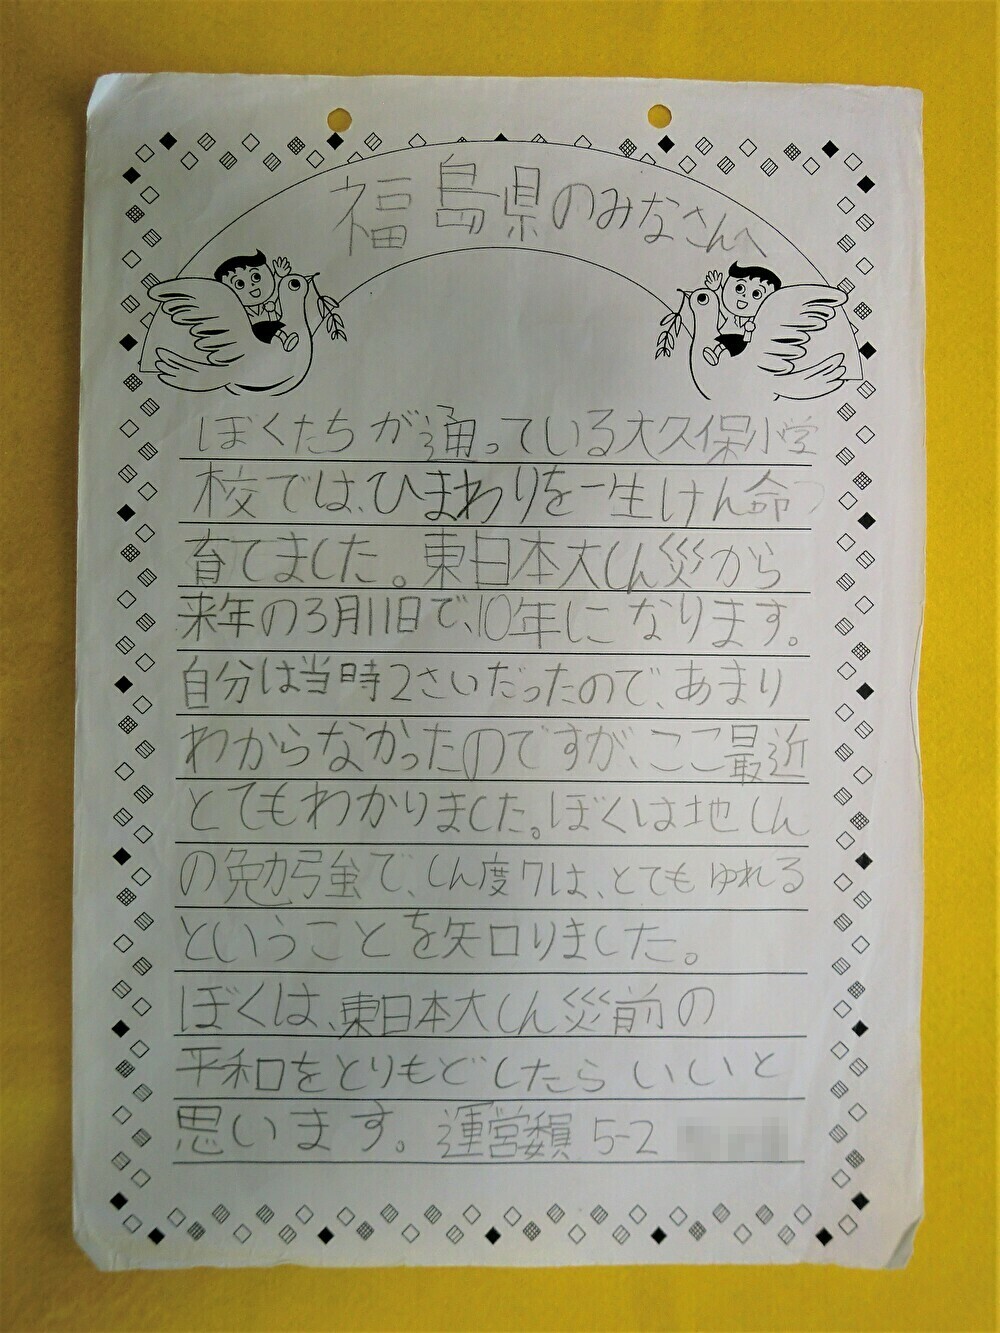 福島県のみなさんへ
ぼくたちが通っている大久保小学
校では、ひまわりを一生けん命
育てました。東日本大しん災から
来年の3月11日で、10年になります。
自分は当時2さいだったので、あまり
わからなかったのですが、ここ最近
とてもわかりました。ぼくは地しん
の勉強で、しん度7は、とてもゆれる
ということを知りました。
ぼくは、東日本大しん災前の
平和をとりもどしたらいいと
思います。運営委員 5-2